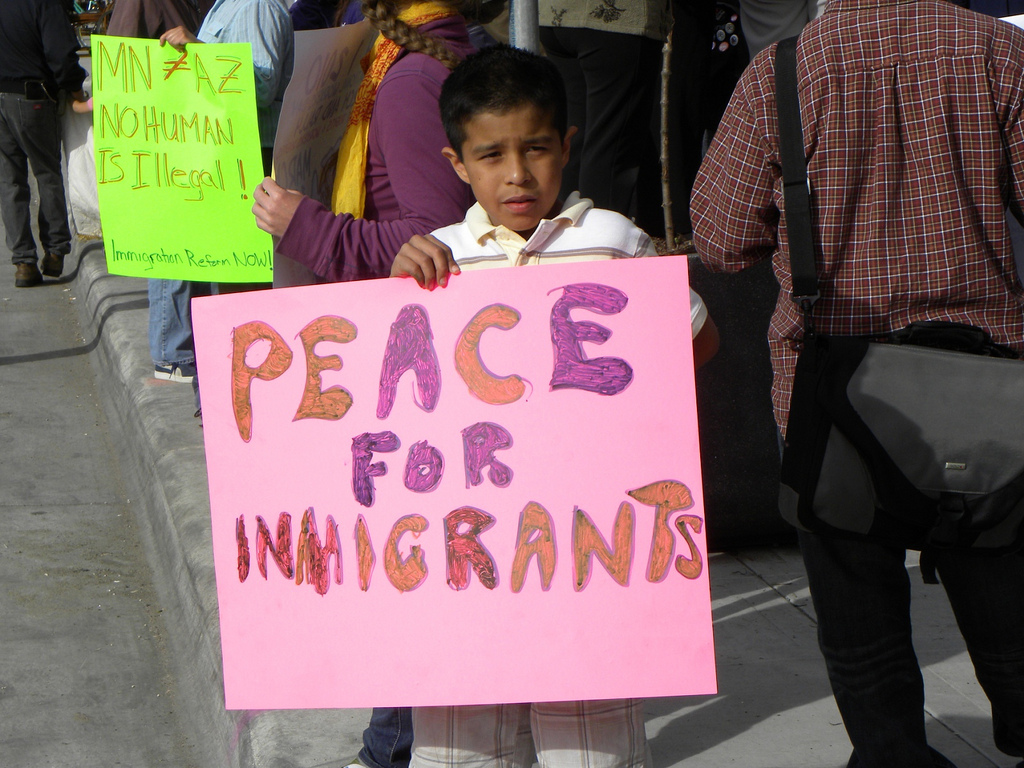 MN ≠ AZ
NO HUMAN
IS Illegal !
Immigration Reform NOW!
PEACE
FOR
INMIGRANTS